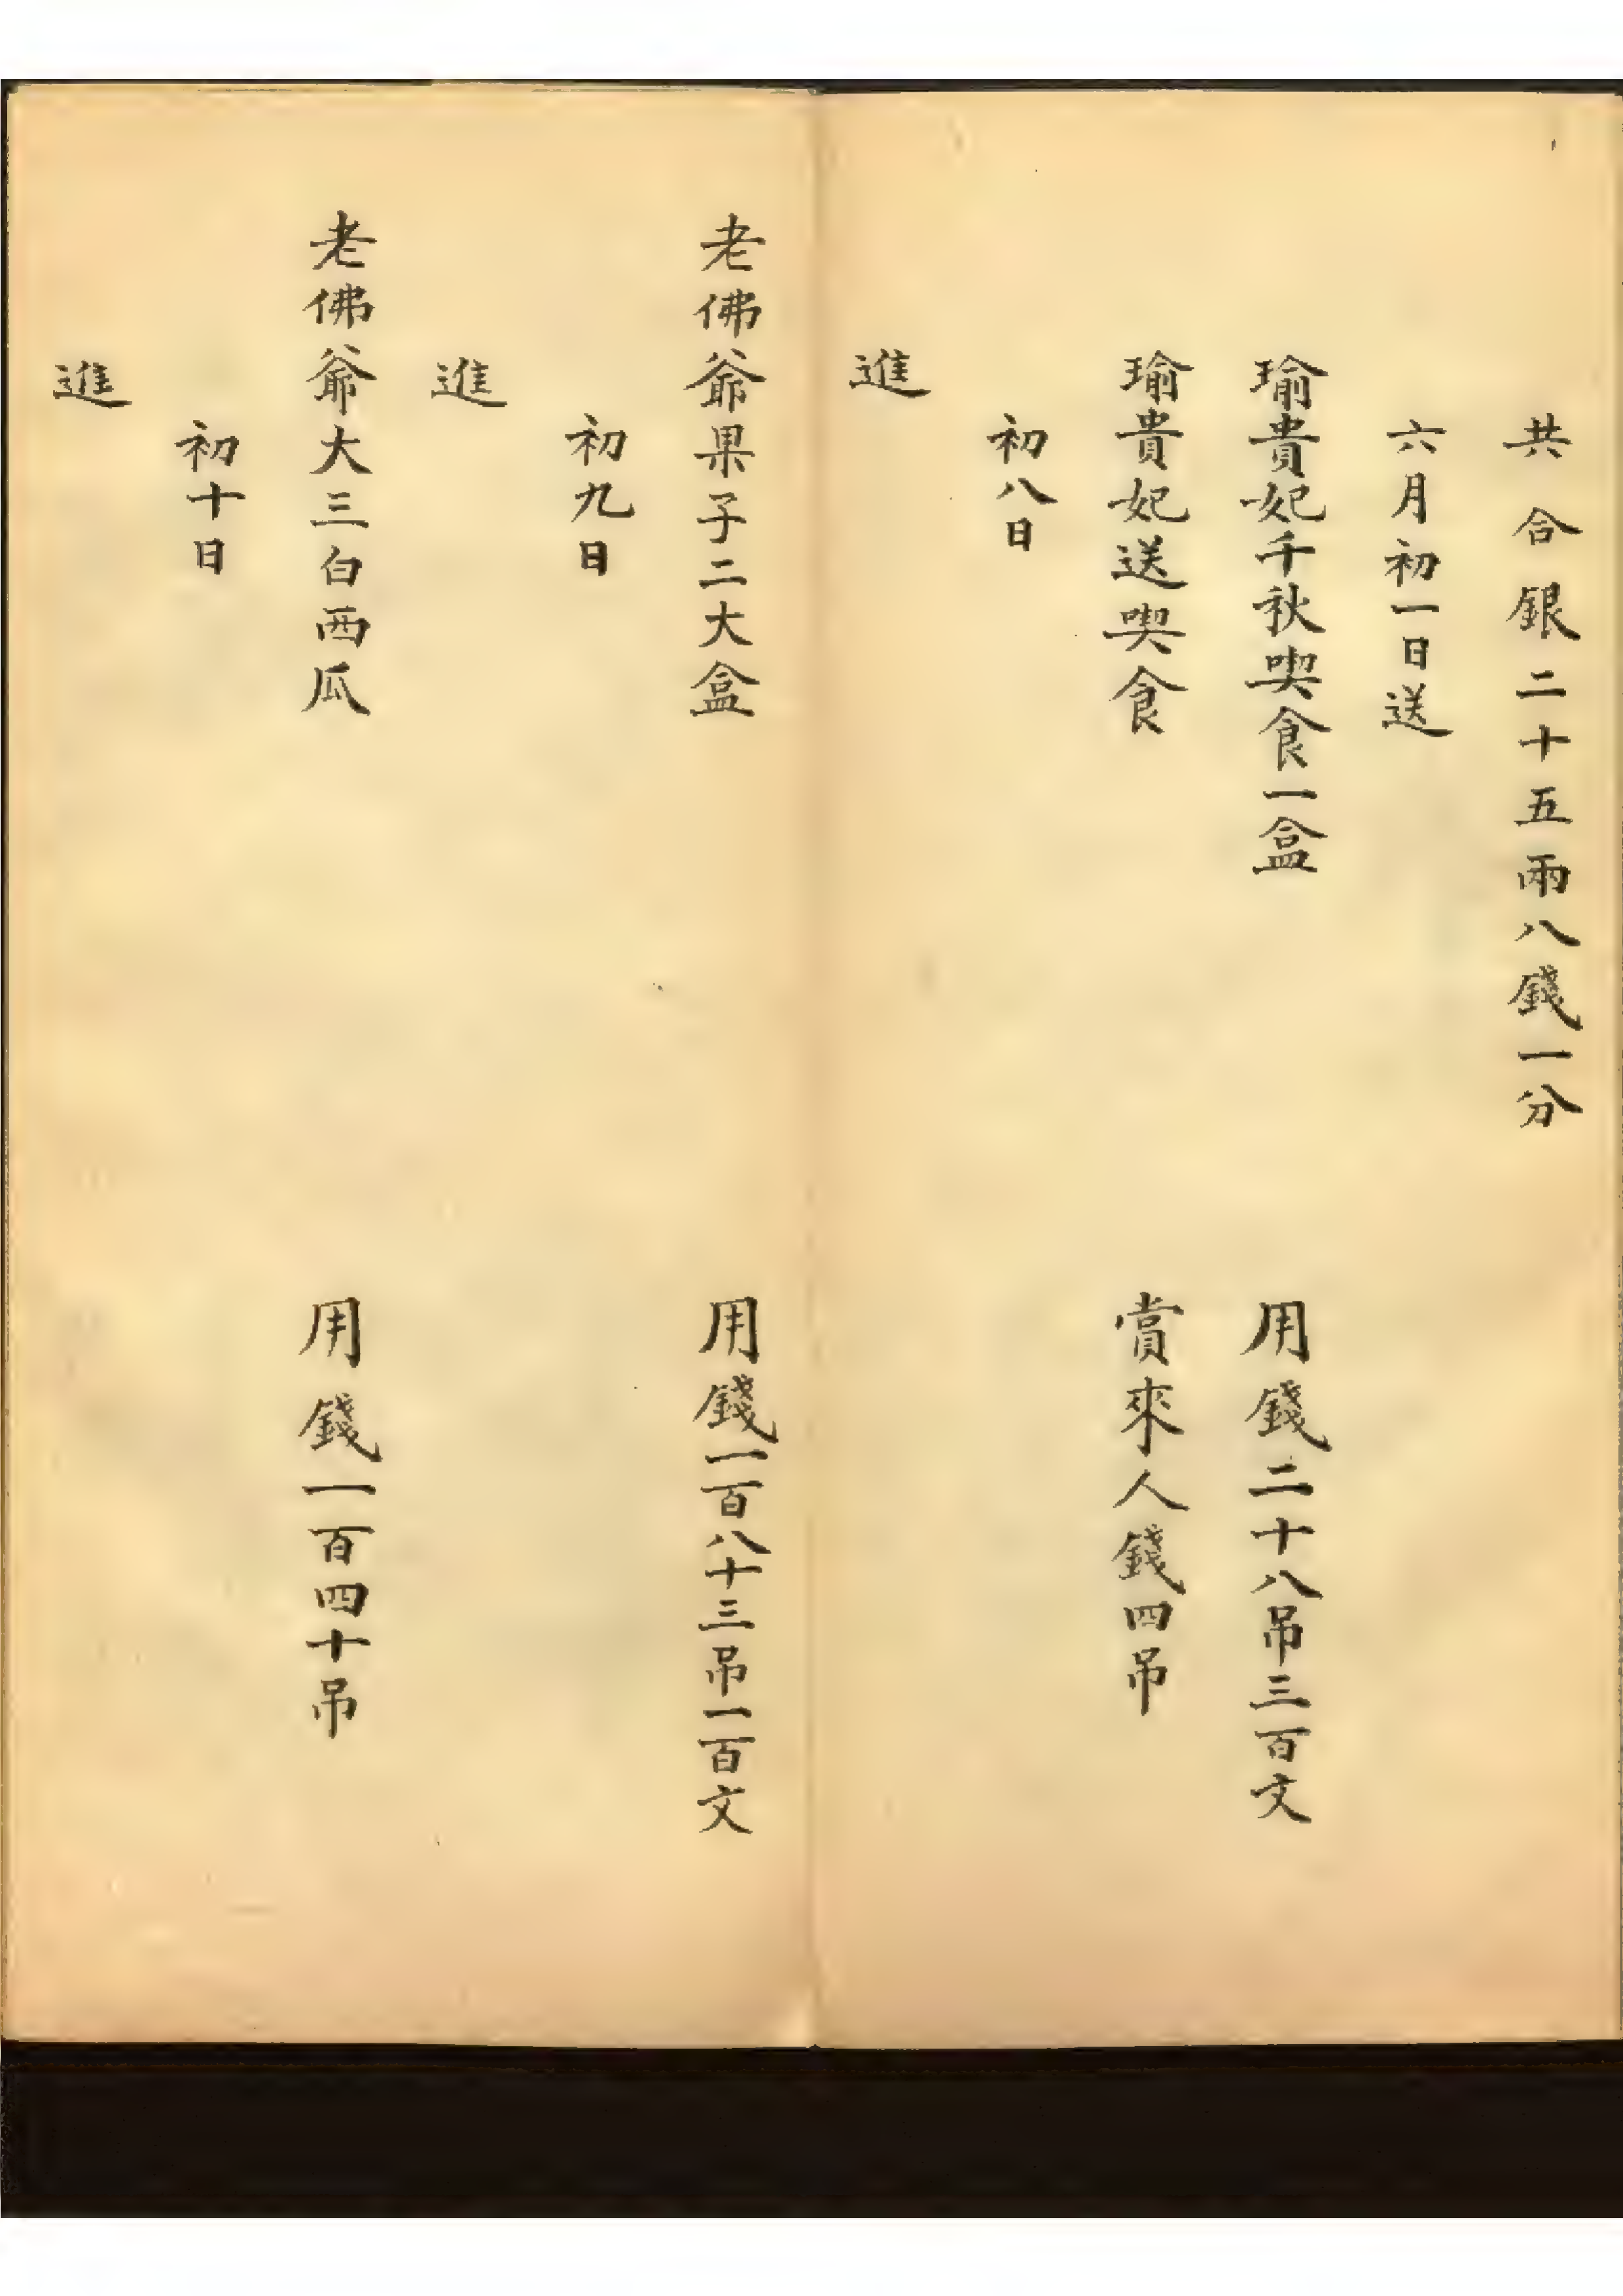 共合銀二十五兩八錢一分
六月初一日送
瑜貴妃千秋喫食一盒 用錢二十八吊三百文
瑜貴妃送喫食 賞來人錢四吊
初八日
進
老佛爺果子二大盒 用錢一百八十三吊一百文
初九日
進
老佛爺大三白西瓜 用錢一百四十吊
初十日
進